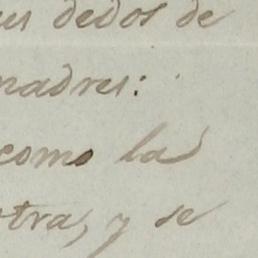 us dedos de
madres:
como la
otra, y se